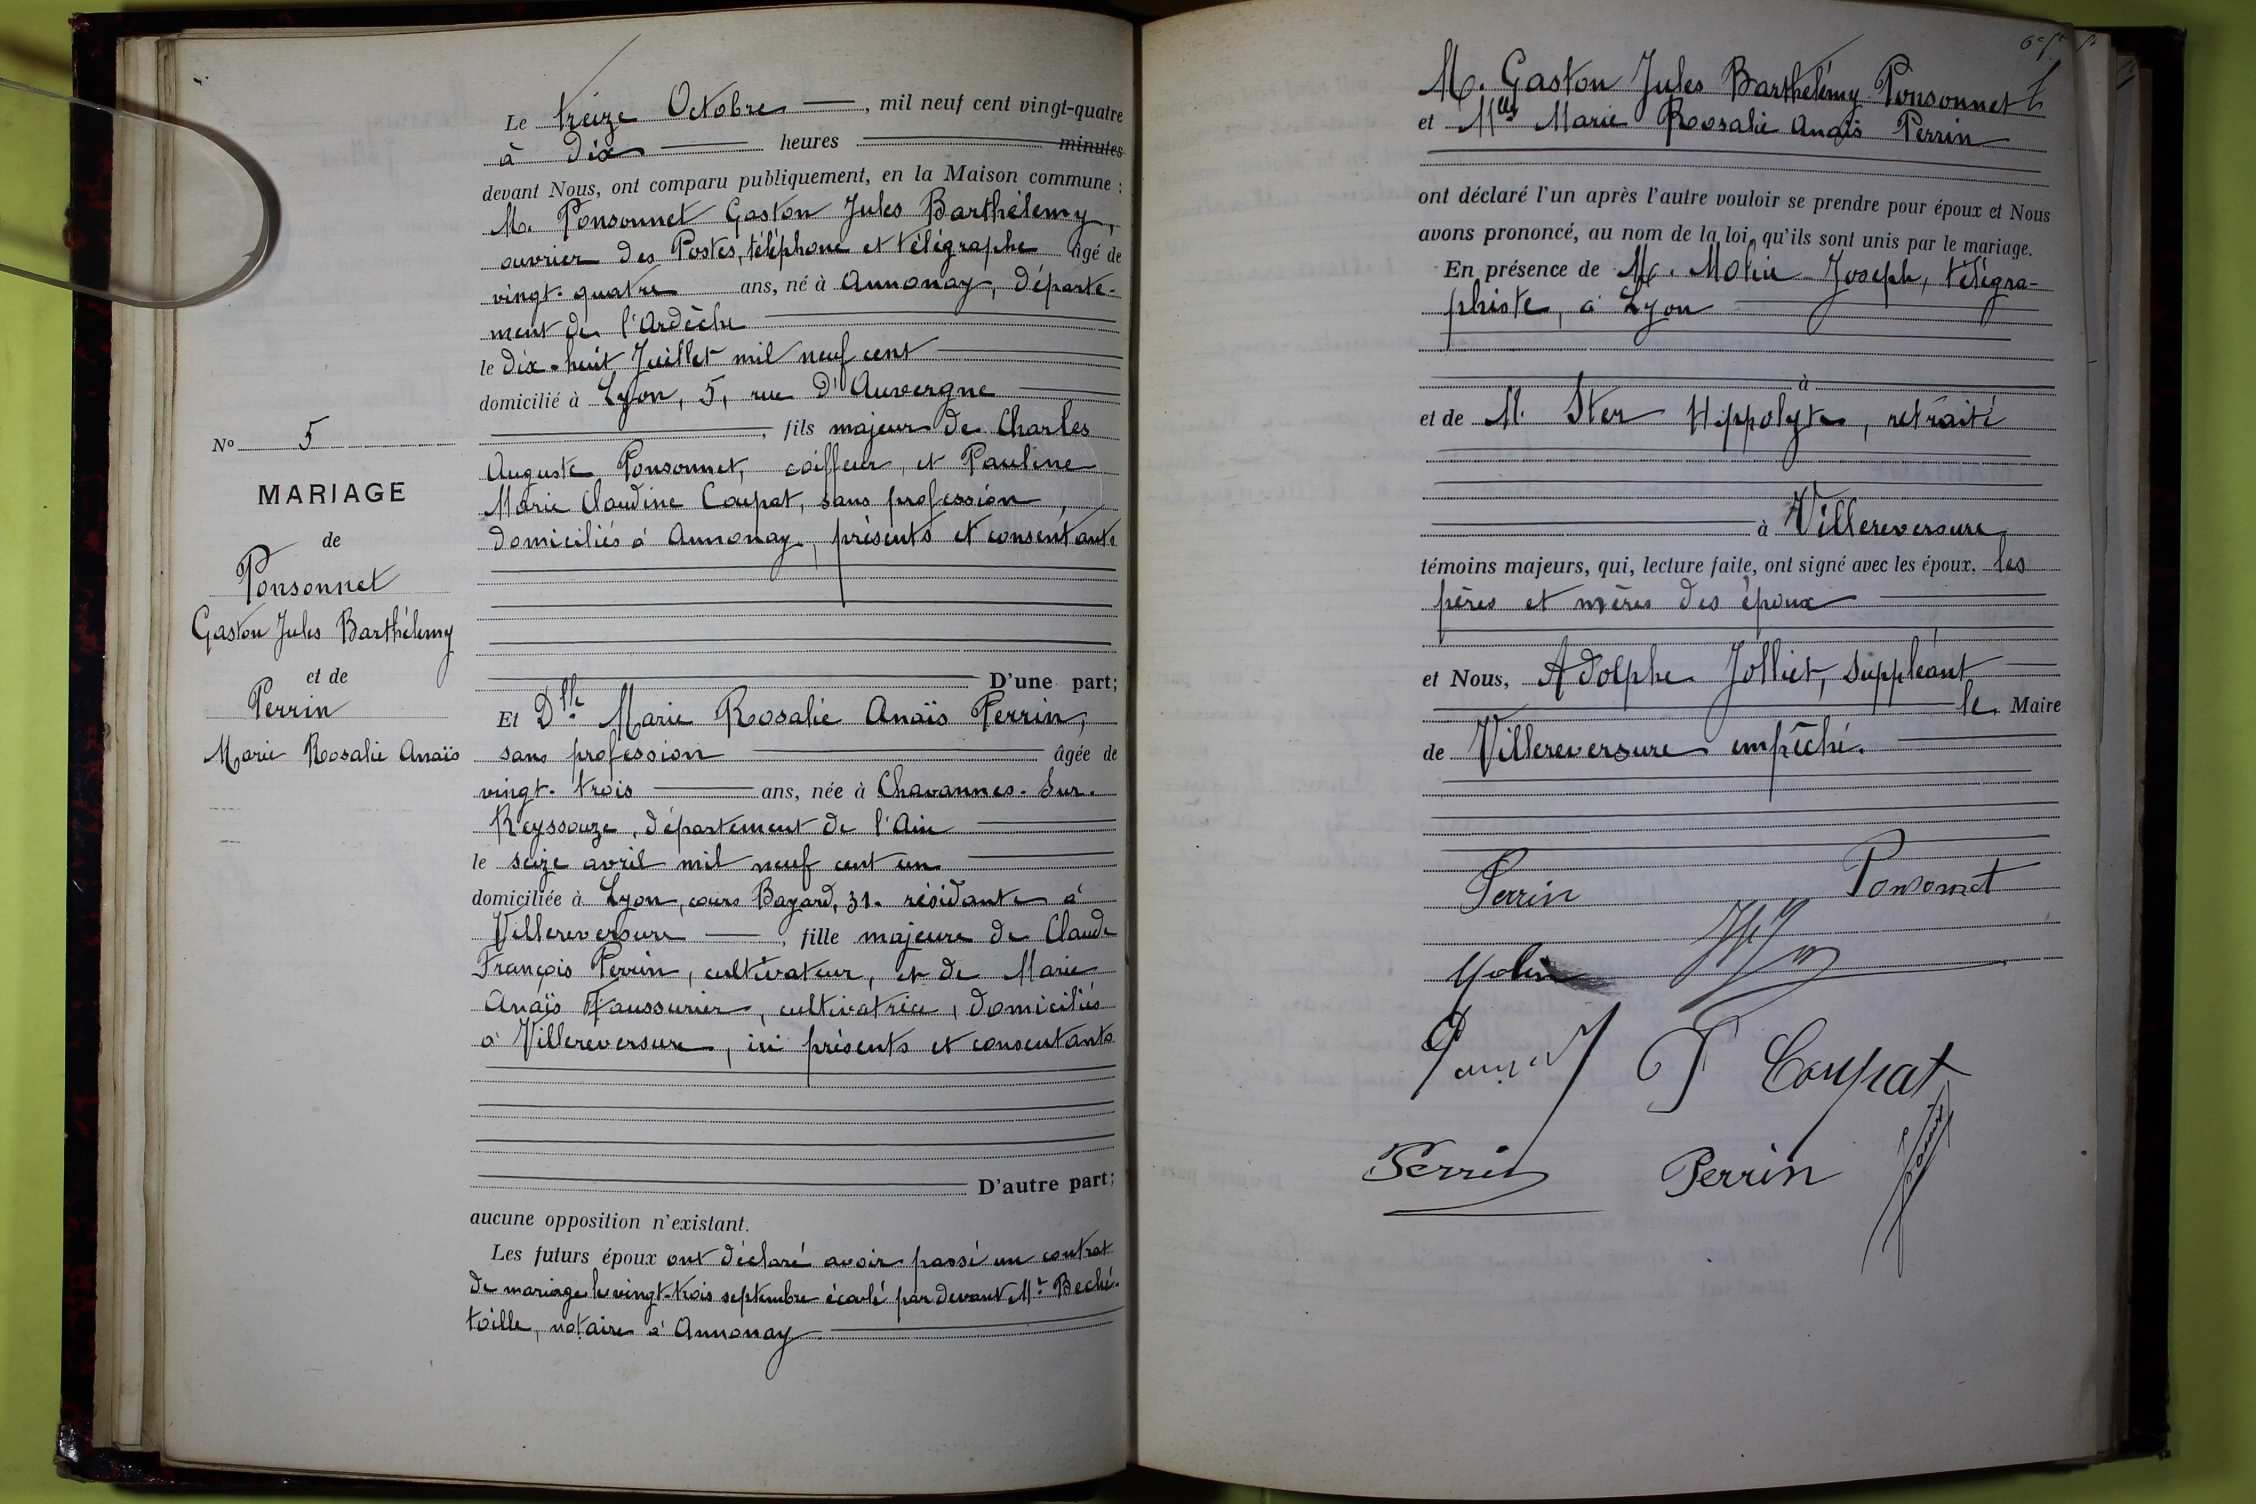 Le treize Octobre, mil neuf cent vingt-quatre
à dix heures minutes
devant Nous, ont comparu publiquement, en la Maison commune :
M. Ponsonnet Gaston Jules Barthélemy,
ouvrier des Postes, téléphone et télégraphe âgé de
vingt-quatre ans, né à Annonay, départe-
ment de l'Ardèche
le dix-huit Juillet mil neuf cent
domicilié à Lyon, 5, rue d'Auvergne
, fils majeur de Charles
Auguste Ponsonnet, coiffeur, et Pauline
Marie Claudine Coupat, sans profession,
domiciliés à Annonay, présents et consentants
D'une part;
Nº 5
MARIAGE
de
Ponsonnet
Gaston Jules Barthélemy
et de
Perrin
Marie Rosalie Anaïs
Et Dlle Marie Rosalie Anaïs Perrin,
sans profession âgée de
vingt-trois ans, née à Chavannes-sur-
Reyssouze, département de l'Ain
le seize avril mil neuf cent un
domiciliée à Lyon, cours Bayard, 31. résidante à
Villereversure, fille majeure de Claude
François Perrin, cultivateur, et de Marie
Anaïs Faussurier, cultivatrice, domiciliés
à Villereversure, ici présents et consentants
D'autre part;
aucune opposition n'existant.
Les futurs époux ont déclaré avoir passé un contrat
de mariage le vingt-trois septembre écoulé par devant Mr Beché-
toille, notaire à Annonay
M. Gaston Jules Barthélemy Ponsonnet
et Mlle Marie Roosalie Anaïs Perrin
ont déclaré l'un après l'autre vouloir se prendre pour époux et Nous
avons prononcé, au nom de la loi, qu'ils sont unis par le mariage.
En présence de M. Molin Joseph, télégra-
phiste, à Lyon
à
et de M. Ster Hippolyte, retraité
à Villereversure
témoins majeurs, qui, lecture faite, ont signé avec les époux, les
pères et mères des époux
et Nous, Adolphe Jolliet, suppléant
le Maire
de Villereversure empêché.
Perrin Ponsonnet
Molin
P Coupat
Perrin Perrin